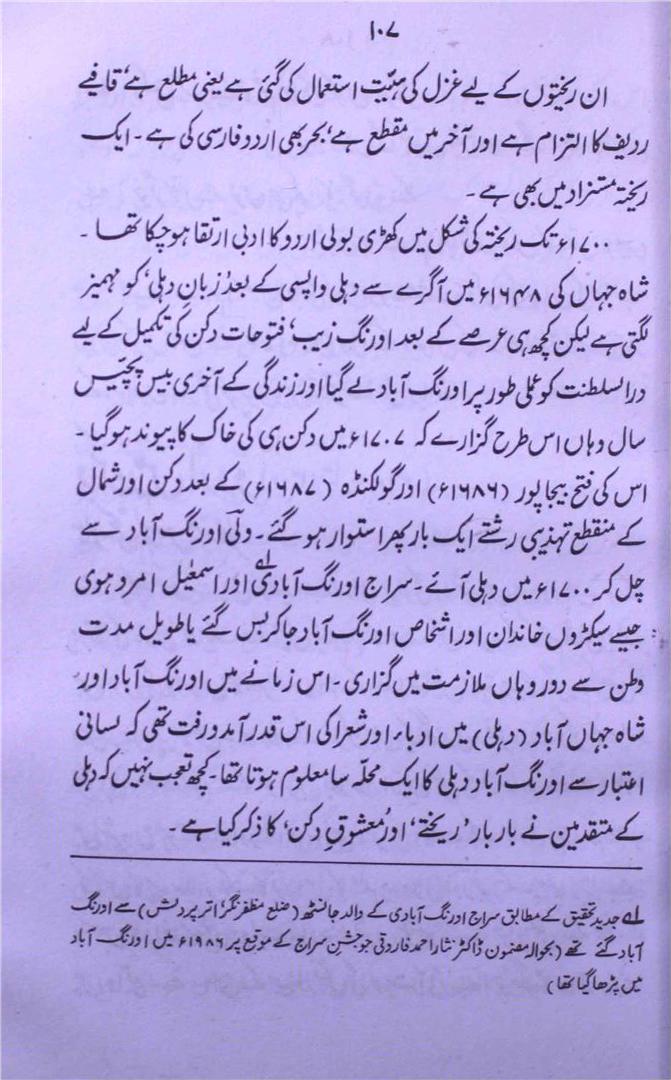 ۱۰۷
ان ریختوں کے لیے غزل کی ہیئت استعمال کی گئی ہے یعنی مطلع ہے، قافیے
ردیف کا التزام ہے اور آخر میں مقطع ہے، بحر بھی اردو فارسی کی ہے۔ ایک
ریختہ مستزاد میں بھی ہے۔
۱۷۰۰ء تک ریختہ کی شکل میں کھڑی بولی اردو کا ادبی ارتقا ہو چکا تھا۔
شاہ جہاں کی ۱۶۴۸ء میں آگرے سے دہلی واپسی کے بعد 'زبانِ دہلی' کو مہمیز
لگتی ہے لیکن کچھ ہی عرصے کے بعد اورنگ زیب، فتوحات دکن کی تکمیل کے لیے
درالسلطنت کو عملی طور پر اورنگ آباد لے گیا اور زندگی کے آخری بیس پچیس
سال وہاں اس طرح گزارے کہ ۱۷۰۷ء میں دکن ہی کی خاک کا پیوند ہو گیا۔
اس کی فتح بیجاپور (۱۶۸۶ء) اور گولکنڈہ (۱۶۸۷ء) کے بعد دکن اور شمال
کے منقطع تہذیبی رشتے ایک بار پھر استوار ہو گئے۔ ولیؔ اورنگ آباد سے
چل کر ۱۷۰۰ء میں دہلی آئے۔ سراج اورنگ آبادی؎۱ اور اسمعٰیل امروہوی
جیسے سیکڑوں خاندان اور اشخاص اورنگ آباد جا کر بس گئے یا طویل مدت
وطن سے دور وہاں ملازمت میں گزاری۔ اس زمانے میں اورنگ آباد اور
شاہ جہاں آباد (دہلی) میں ادباء اور شعرا کی اس قدر آمدورفت تھی کہ لسانی
اعتبار سے اورنگ آباد دہلی کا ایک محلّہ سا معلوم ہوتا تھا۔ کچھ تعجب نہیں کہ دہلی
کے متقدمین نے بار بار 'ریختے' اور 'معشوقِ دکن' کا ذکر کیا ہے۔
؎۱ جدید تحقیق کے مطابق سراج اورنگ آبادی کے والد جانسٹھ (ضلع مظفر نگر، اتر پردیش) سے اورنگ
آباد گئے تھے (بحوالہ مضمون ڈاکٹر نثار احمد فاروقی جو جشنِ سراج کے موقع پر ۱۹۸۶ء میں اورنگ آباد
میں پڑھا گیا تھا)